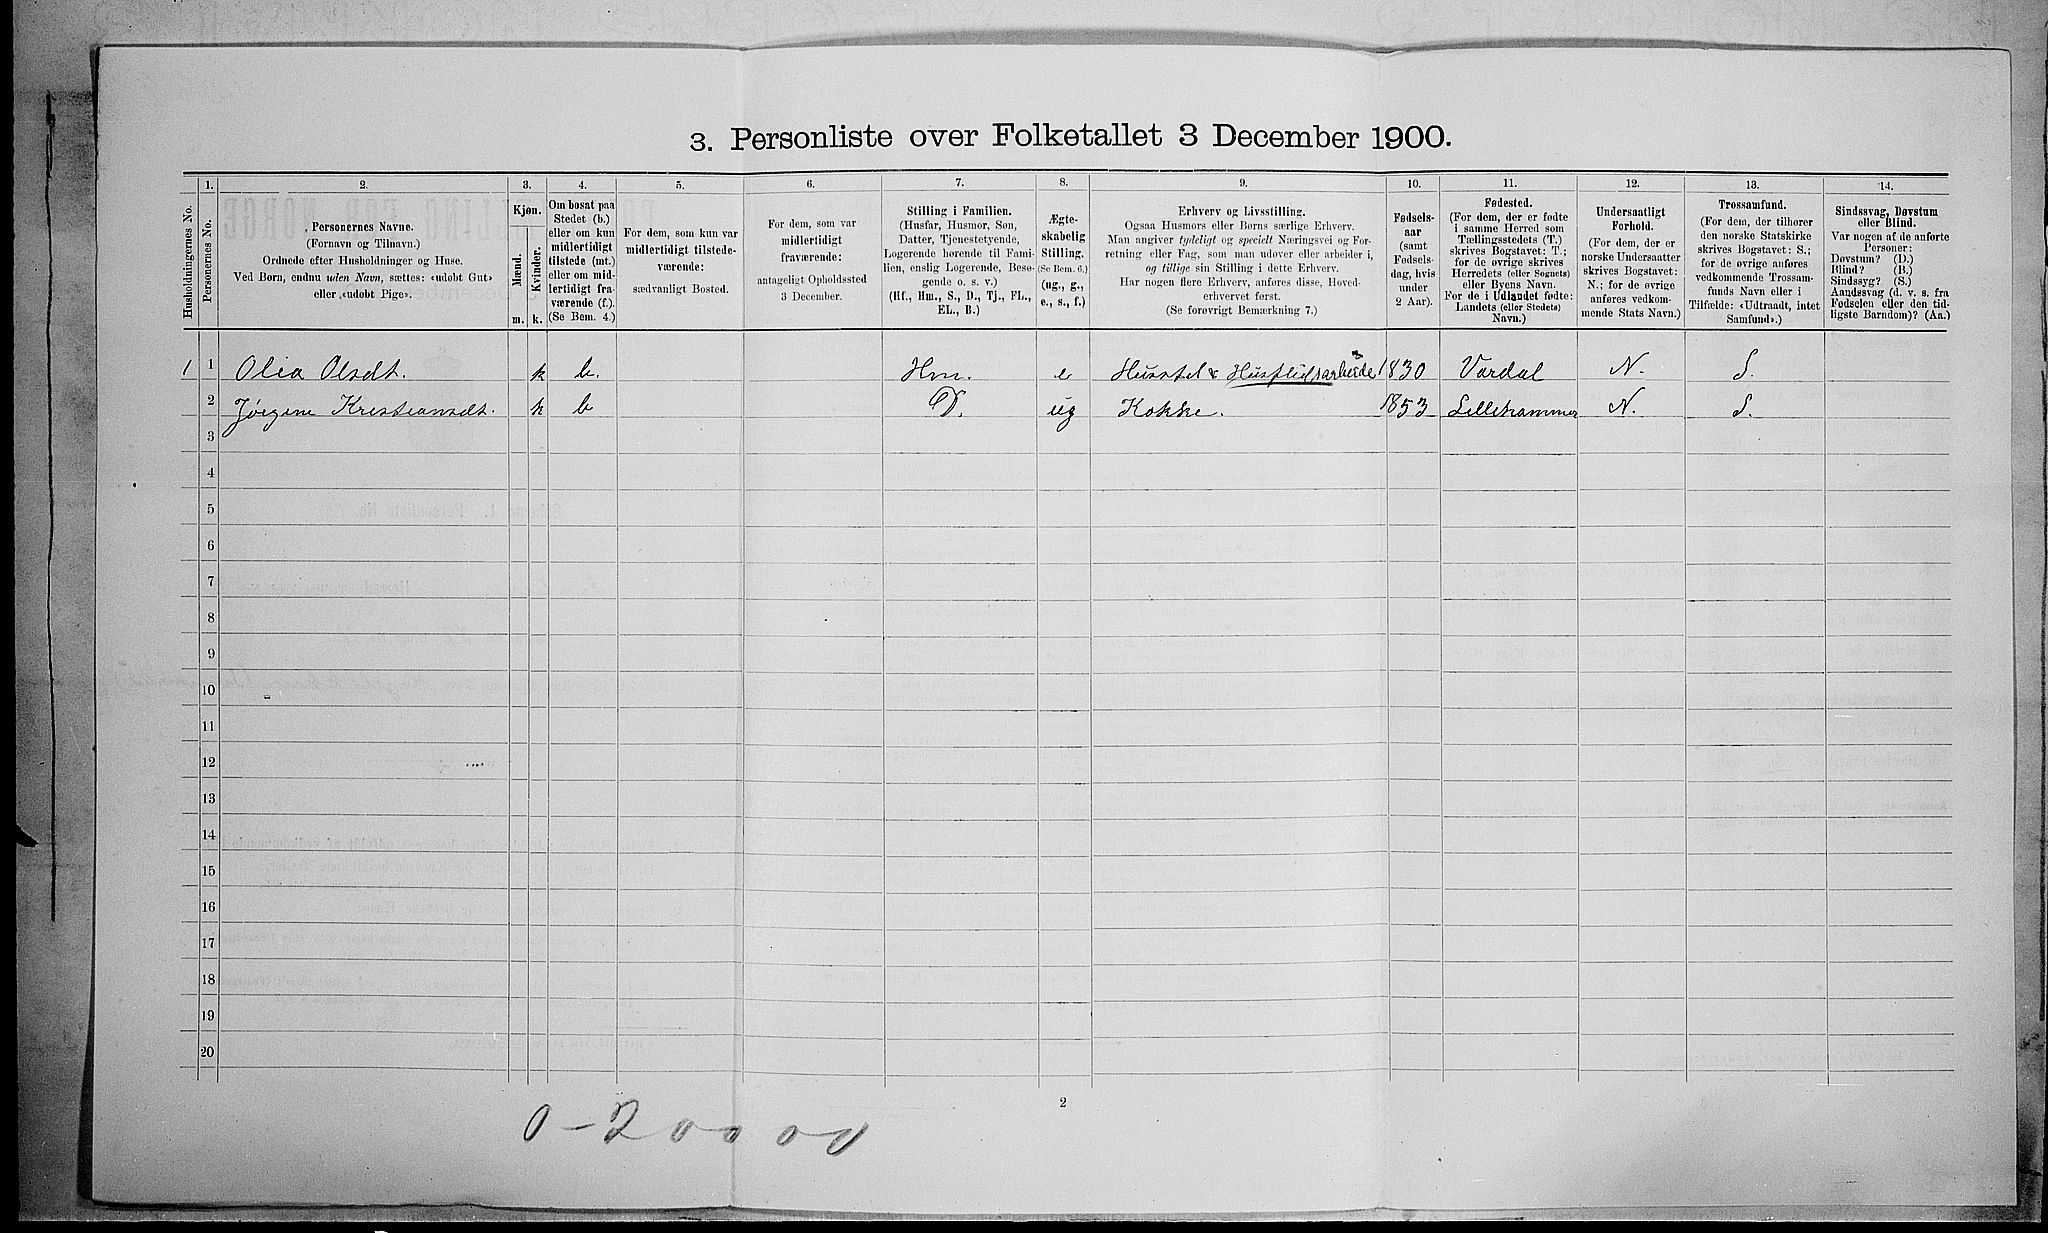 3. Personliste over Folketallet 3 December 1900.
Husholdningernes No.
1.
Personernes No.
2.
Personernes Navne.
(Fornavn og Tilnavn.)
Ordnede efter Husholdninger og Huse.
Ved Børn, endnu uden Navn, sættes: «udøbt Gut»
eller «udøbt Pige».
3.
Kjøn.
Mænd.
Kvinder.
m.
k.
4.
Om bosat paa
Stedet (b.)
eller om kun
midlertidigt
tilstede (mt.)
eller om mid-
lertidigt fra-
værende (f.).
(Se Bem. 4.)
5.
For dem, som kun var
midlertidigt tilstede-
værende:
sædvanligt Bosted.
6.
For dem, som var
midlertidigt
fraværende:
antageligt Opholdssted
3 December.
7.
Stilling i Familien.
(Husfar, Husmor, Søn,
Datter, Tjenestetyende,
Logerende hørende til Fami-
lien, enslig Logerende, Besø-
gende o. s. v.)
(Hf., Hm., S., D., Tj., FL.,
EL., B.)
8.
Ægte-
skabelig
Stilling.
(Se Bem. 6.)
(ug., g.,
e., s., f.)
9.
Erhverv og Livsstilling.
Ogsaa Husmors eller Børns særlige Erhverv.
Man angiver tydeligt og specielt Næringsvei og For-
retning eller Fag, som man udøver eller arbeider i,
og tillige sin Stilling i dette Erhverv.
Har nogen flere Erhverv, anføres disse, Hoved-
erhvervet først.
(Se forøvrigt Bemærkning 7.)
10.
Fødsels-
aar
(samt
Fødsels-
dag, hvis
under
2 Aar).
11.
Fødested.
(For dem, der er fødte
i samme Herred som
Tællingsstedets (T.)
skrives Bogstavet: T.;
for de øvrige skrives
Herredets (eller Sognets)
eller Byens Navn.
For de i Udlandet fødte:
Landets (eller Stedets)
Navn.)
12.
Undersaatligt
Forhold.
(For dem, der er
norske Undersaatter
skrives Bogstavet:
N.; for de øvrige
anføres vedkom-
mende Stats Navn.)
13.
Trossamfund.
(For dem, der tilhører
den norske Statskirke
skrives Bogstavet: S.;
for de øvrige anføres
vedkommende Trossam-
funds Navn eller i
Tilfælde: «Udtraadt, intet
Samfund».)
14.
Sindssvag, Døvstum
eller Blind.
Var nogen af de anførte
Personer:
Døvstum? (D.)
Blind? (B.)
Sindssyg? (S.)
Aandssvag (d. v. s. fra
Fødselen eller den tid-
ligste Barndom)? (Aa.)
1 1 Olia Olsdt. k b. Hm. e Husstel & Husflidsarbeide 1830 Vardal N. S.
2 Jørgine Kristiansdt. k b D. ug Kokke. 1853 Lillehammer N. S.
3
4
5
6
7
8
9
10
11
12
13
14
15
16
17
18
19
20
2
0-200 00